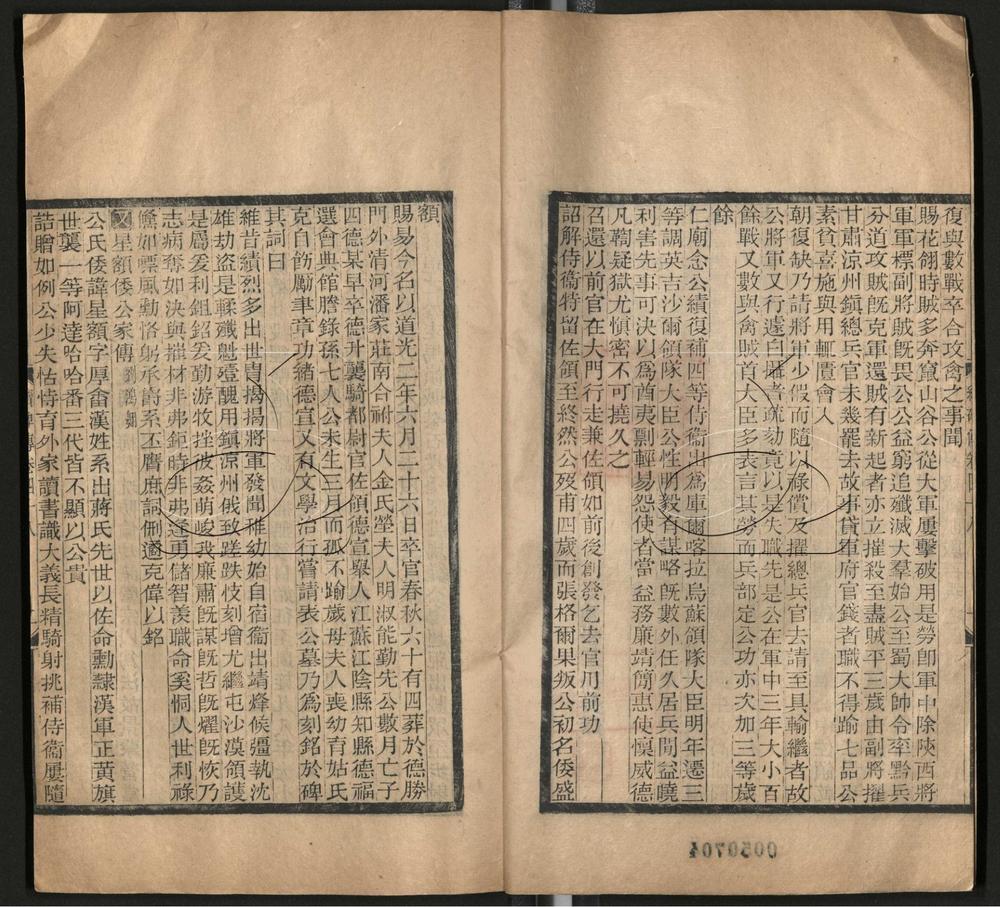 復與數戰卒合攻禽之事聞
賜花翎時賊多奔竄山谷公從大軍屢擊破用是勞卽軍中除陝西將
軍軍標副將賊旣畏公公益窮追殲滅大羣始公至蜀大帥令率黔兵
分道攻賊旣克軍還賊有新起者亦立摧殺至盡賊平三歲由副將擢
甘肅涼州鎭總兵官未幾罷去故事貸軍府官錢者職不得踰七品公
素貧喜施與用輒匱會入
朝復缺乃請將軍少假而隨以祿償及擢總兵官去請至具輸繼者故
公將軍又行遽自 者疏劾竟以是失職先是公在軍中三年大小百
餘戰又數與禽賊首大臣多表言其勞而兵部定公功亦次加三等歲
餘
仁廟念公績復補四等侍衞出爲庫爾喀拉烏蘇領隊大臣明年遷三
等調英吉沙爾領隊大臣公性明毅有謀略旣數外任久居兵間益曉
利害先事可決以爲酋夷剽輕易怨使者當益務廉靖簡惠使懷威德
凡鞫疑獄尤愼密不可撓久之
召還以前官在大門行走兼佐領如前後創發乞去官用前功
詔解侍衞特留佐領至終然公歿甫四歲而張格爾果叛公初名倭盛
額
賜易今名以道光二年六月二十六日卒官春秋六十有四葬於德勝
門外清河潘家莊南合祔夫人金氏塋夫人明淑能勤先公數月亡子
四德某早卒德升襲騎都尉官佐領德宣舉人江蘇江陰縣知縣德福
選會典館謄錄孫七人公未生三月而孤不踰歲母夫人喪幼育姑氏
克自飭勵聿章功緒德宣又有文學治行嘗請表公墓乃爲刻銘於碑
其詞曰
維昔績烈多出世胄揭揭將軍發聞稚幼始自宿衞出靖烽候彊執沈
雄劫盜是輮殲魁殪醜用鎭涼州俄致蹉跌忮刻增尤繼屯沙漠領護
是屬爰利鉏鋙爰勤游牧挫彼姦萌峻我廉肅旣謀旣哲旣燿旣恢乃
志病奪如決與摧材非弗鉅時非弗逢勇儲智羨職命奚恫人世利祿
儵如嘌風勤恪躬承爵系丕膺庶詞刪適克偉以銘
星額倭公家傳 劉鴻翺
公氏倭諱星額字厚畬漢姓系出蔣氏先世以佐命勳隸漢軍正黃旗
世襲一等阿達哈哈番三代皆不顯以公貴
誥贈如例公少失怙恃育外家讀書識大義長精騎射挑補侍衞屢隨
0050704